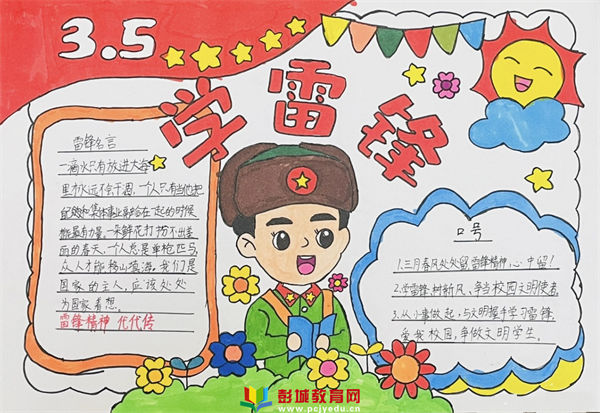 3.5
学雷锋
雷锋名言
一滴水只有放进大海
里才永远不会干涸,一个人只有当他把
自己和集体事业融合在一起的时候
才能最有力量。一朵鲜花打扮不出美
丽的春天,个人总是单枪匹马,
众人才能移山填海。我们是
国家的主人,应该处处
为国家着想。
雷锋精神 代代传
口号
1.三月春风处处留,雷锋精神心中留!
2.学雷锋、树新风、争当校园文明使者。
3.从小事做起,与文明握手学习雷锋
爱我校园,争做文明学生。
彭城教育网
www.pcjyedu.cn